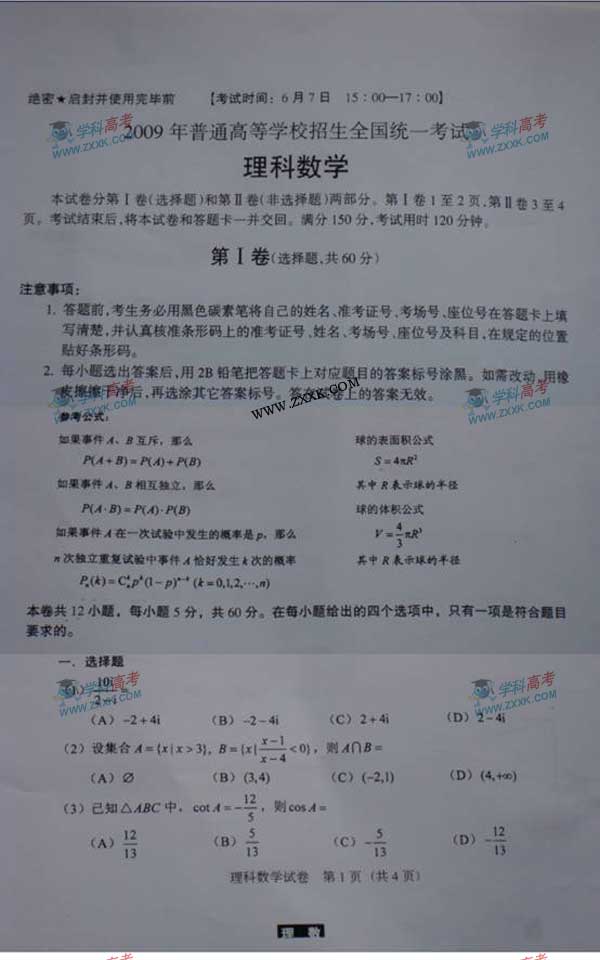 绝密★启封并使用完毕前 【考试时间：6月7日 15：00—17：00】
2009年普通高等学校招生全国统一考试
学科高考
WWW.ZXXK.COM
学科高考
WWW.ZXXK.COM
理科数学
本试卷分第Ⅰ卷(选择题)和第Ⅱ卷(非选择题)两部分。第Ⅰ卷1至2页,第Ⅱ卷3至4
页。考试结束后,将本试卷和答题卡一并交回。满分150分,考试用时120分钟。
第Ⅰ卷(选择题,共60分)
注意事项：
1. 答题前,考生务必用黑色碳素笔将自己的姓名、准考证号、考场号、座位号在答题卡上填
写清楚,并认真核准条形码上的准考证号、姓名、考场号、座位号及科目,在规定的位置
贴好条形码。
2. 每小题选出答案后,用2B铅笔把答题卡上对应题目的答案标号涂黑。如需改动,用橡
皮擦擦干净后,再选涂其它答案标号。答在试卷上的答案无效。
学科高考
WWW.ZXXK.COM
www.zxxk.com
学科高考
WWW.ZXXK.COM
参考公式：
如果事件A、B互斥，那么 球的表面积公式
P(A+B)=P(A)+P(B) S=4πR²
如果事件A、B相互独立，那么 其中R表示球的半径
P(A·B)=P(A)·P(B) 球的体积公式
如果事件A在一次试验中发生的概率是p，那么 V=4/3πR³
n次独立重复试验中事件A恰好发生k次的概率 其中R表示球的半径
Pₙ(k)=Cₙᵏpᵏ(1−p)ⁿ⁻ᵏ (k=0,1,2,⋯,n)
本卷共12小题，每小题5分，共60分。在每小题给出的四个选项中，只有一项是符合题目
要求的。
一．选择题
(1) 10i/2-i=
学科高考
WWW.ZXXK.COM
学科高考
WWW.ZXXK.COM
(A) -2+4i (B) -2-4i (C) 2+4i (D) 2-4i
(2) 设集合A={x|x>3}, B={x|x-1/x-4<0}，则A∩B=
(A) ∅ (B) (3,4) (C) (-2,1) (D) (4,+∞)
(3) 已知△ABC中，cotA=-12/5，则cosA=
(A) 12/13 (B) 5/13 (C) -5/13 (D) -12/13
理科数学试卷 第1页（共4页）
理 数